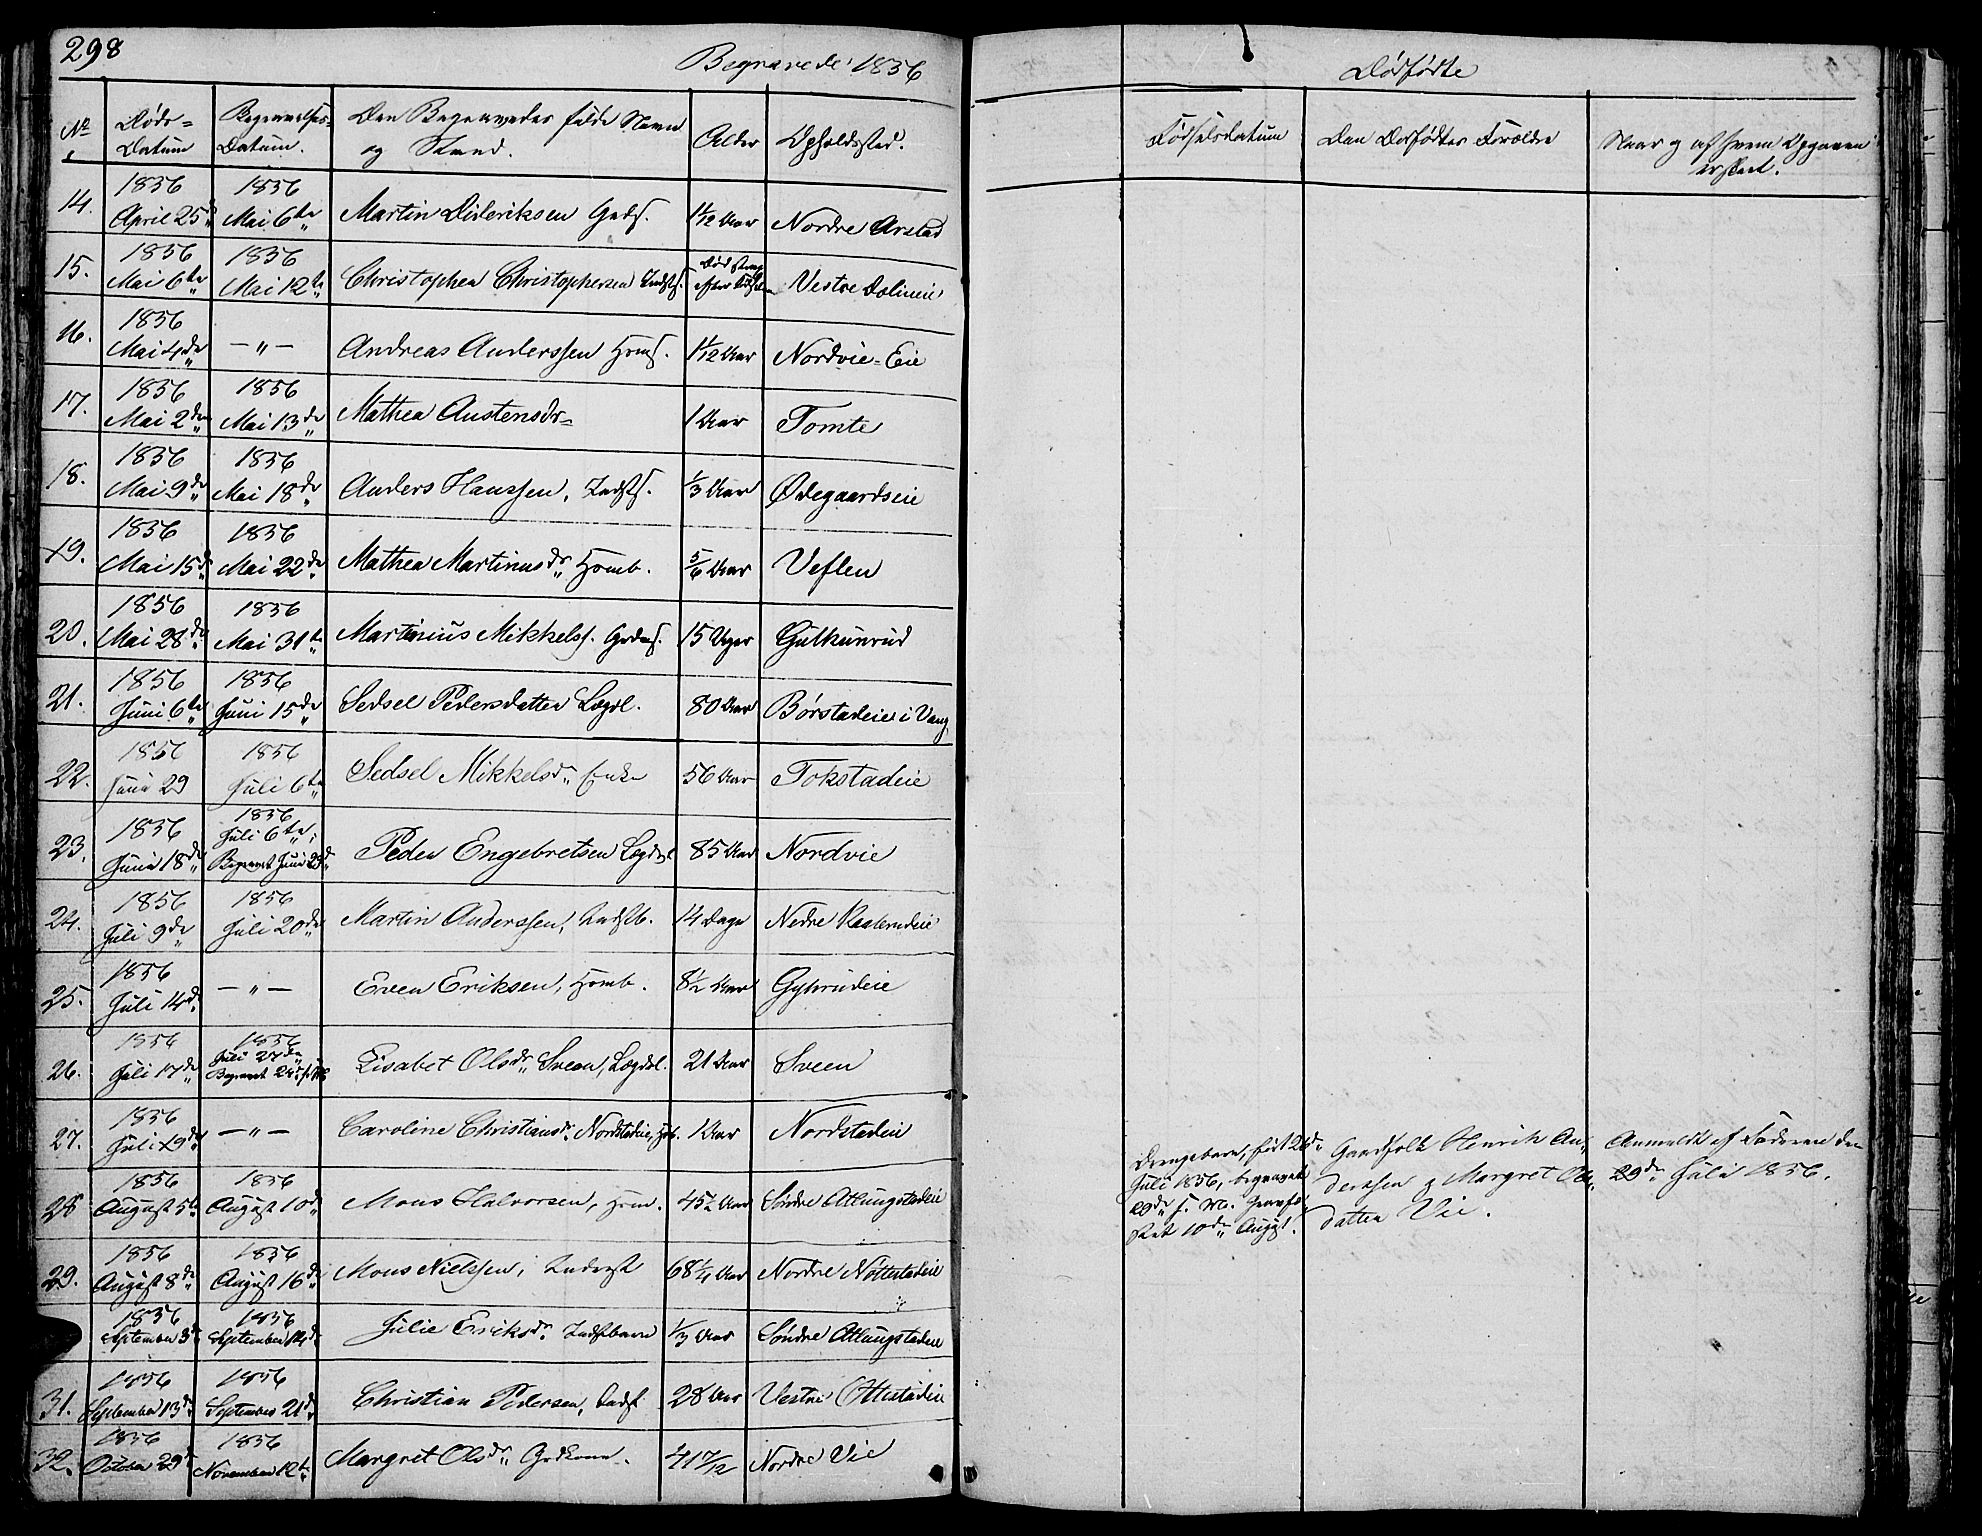 298
Begravede 1856
No
Døds-
Datum
Begravelses-
Datum.
Den Begravedes fulde Navn
og Stand.
Alder
Opholdssted.
14.
1856
April 25de
1856
Mai 6te
Martin Dideriksen Gads.
1 1/12 Aar
Nordre Arstad
15.
1856
Mai 6te
1856
Mai 12te
Christopher Christophersen Indsts.
Død strax
efter Fødselen
Vestre Dolineie
16.
1856
Mai 4de
— " —
Andreas Anderssen Hums.
1 1/12 Aar
Nordvie-Eie
17.
1856
Mai 2den
1856
Mai 13de
Mathea Austensdr=
1 Aar
Tomte
18.
1856
Mai 9de
1856
Mai 18de
Anders Hanssen, Indsts.
1/3 Aar
Ødegaardseie
19.
1856
Mai 15de
1856
Mai 22de
Mathea Martinusdr. Hомb.
5/6 Aar
Veflen
20.
1856
Mai 28de
1856
Mai 31te
Martinius Mikkelss. Grdms.
15 Uger
Gulkunrud
21.
1856
Juni 6te
1856
Juni 15de
Sedsel Pedersdatter Lægdl.
80 Aar
Børstadeie i Vang
22.
1856
Juni 29
1856
Juli 6te
Sedsel Mikkelsdr. Enke
56 Aar
Tokstadeie
23.
1856
Juni 18de
1856
Juli 6te,
Begravet Juni 23de
Peder Engebretsen Lægdsl
85 Aar
Nordvie
24.
1856
Juli 9de
1856
Juli 20de
Martin Anderssen, Indstb.
14 Dage
Nedre Kaalerudeie
25.
1856
Juli 14de
— " —
Even Eriksen, Humb.
8 1/2 Aar
Gyhrudeie
26.
1856
Juli 17de
1856
Juli 27de
Begravet
Lisabet Olsdr. Sveen, Lægdsl.
21 Aar
Sveen
27.
1856
Juli 19de
— " —
Caroline Christiansdr. Nordstadeie, Hb.
1 Aar
Nordstadeie
28
1856
August 5te
1856
August 10de
Mons Halvorsen, Hum.
45 1/2 Aar
Søndre Atlungstadeie
29.
1856
August 8de
1856
August 16de
Mons Nielssen, Inderst
68 1/4 Aar
Nordre Nøttestadeie
1856
September 3de
1856
September 14de
Julie Eriksdr. Indstbarn
1/3 Aar
Søndre Atlungstadeie
31.
1856
September 13de
1856
September 21de
Christian Pedersen, Indst
28 Aar
Vestre Ottestadeie
32.
1856
October 29de
1856
November 12te
Margret Olsdr. Grdkone.
41 7/12
Nordre Vie
Dødfødte
Fødselsdatum
Den Dødfødtes Forældre
Naar og af hvem Opgaven
er skeet.
Drengebarn, født 26de
Juli 1856, begravet
29de s. M. Jordfæ-
stet 10de August.
Gaardfolk Henrik An-
derssen og Margret Ols-
datter Vie.
Anmeldt af Faderen den
29de Juli 1856.